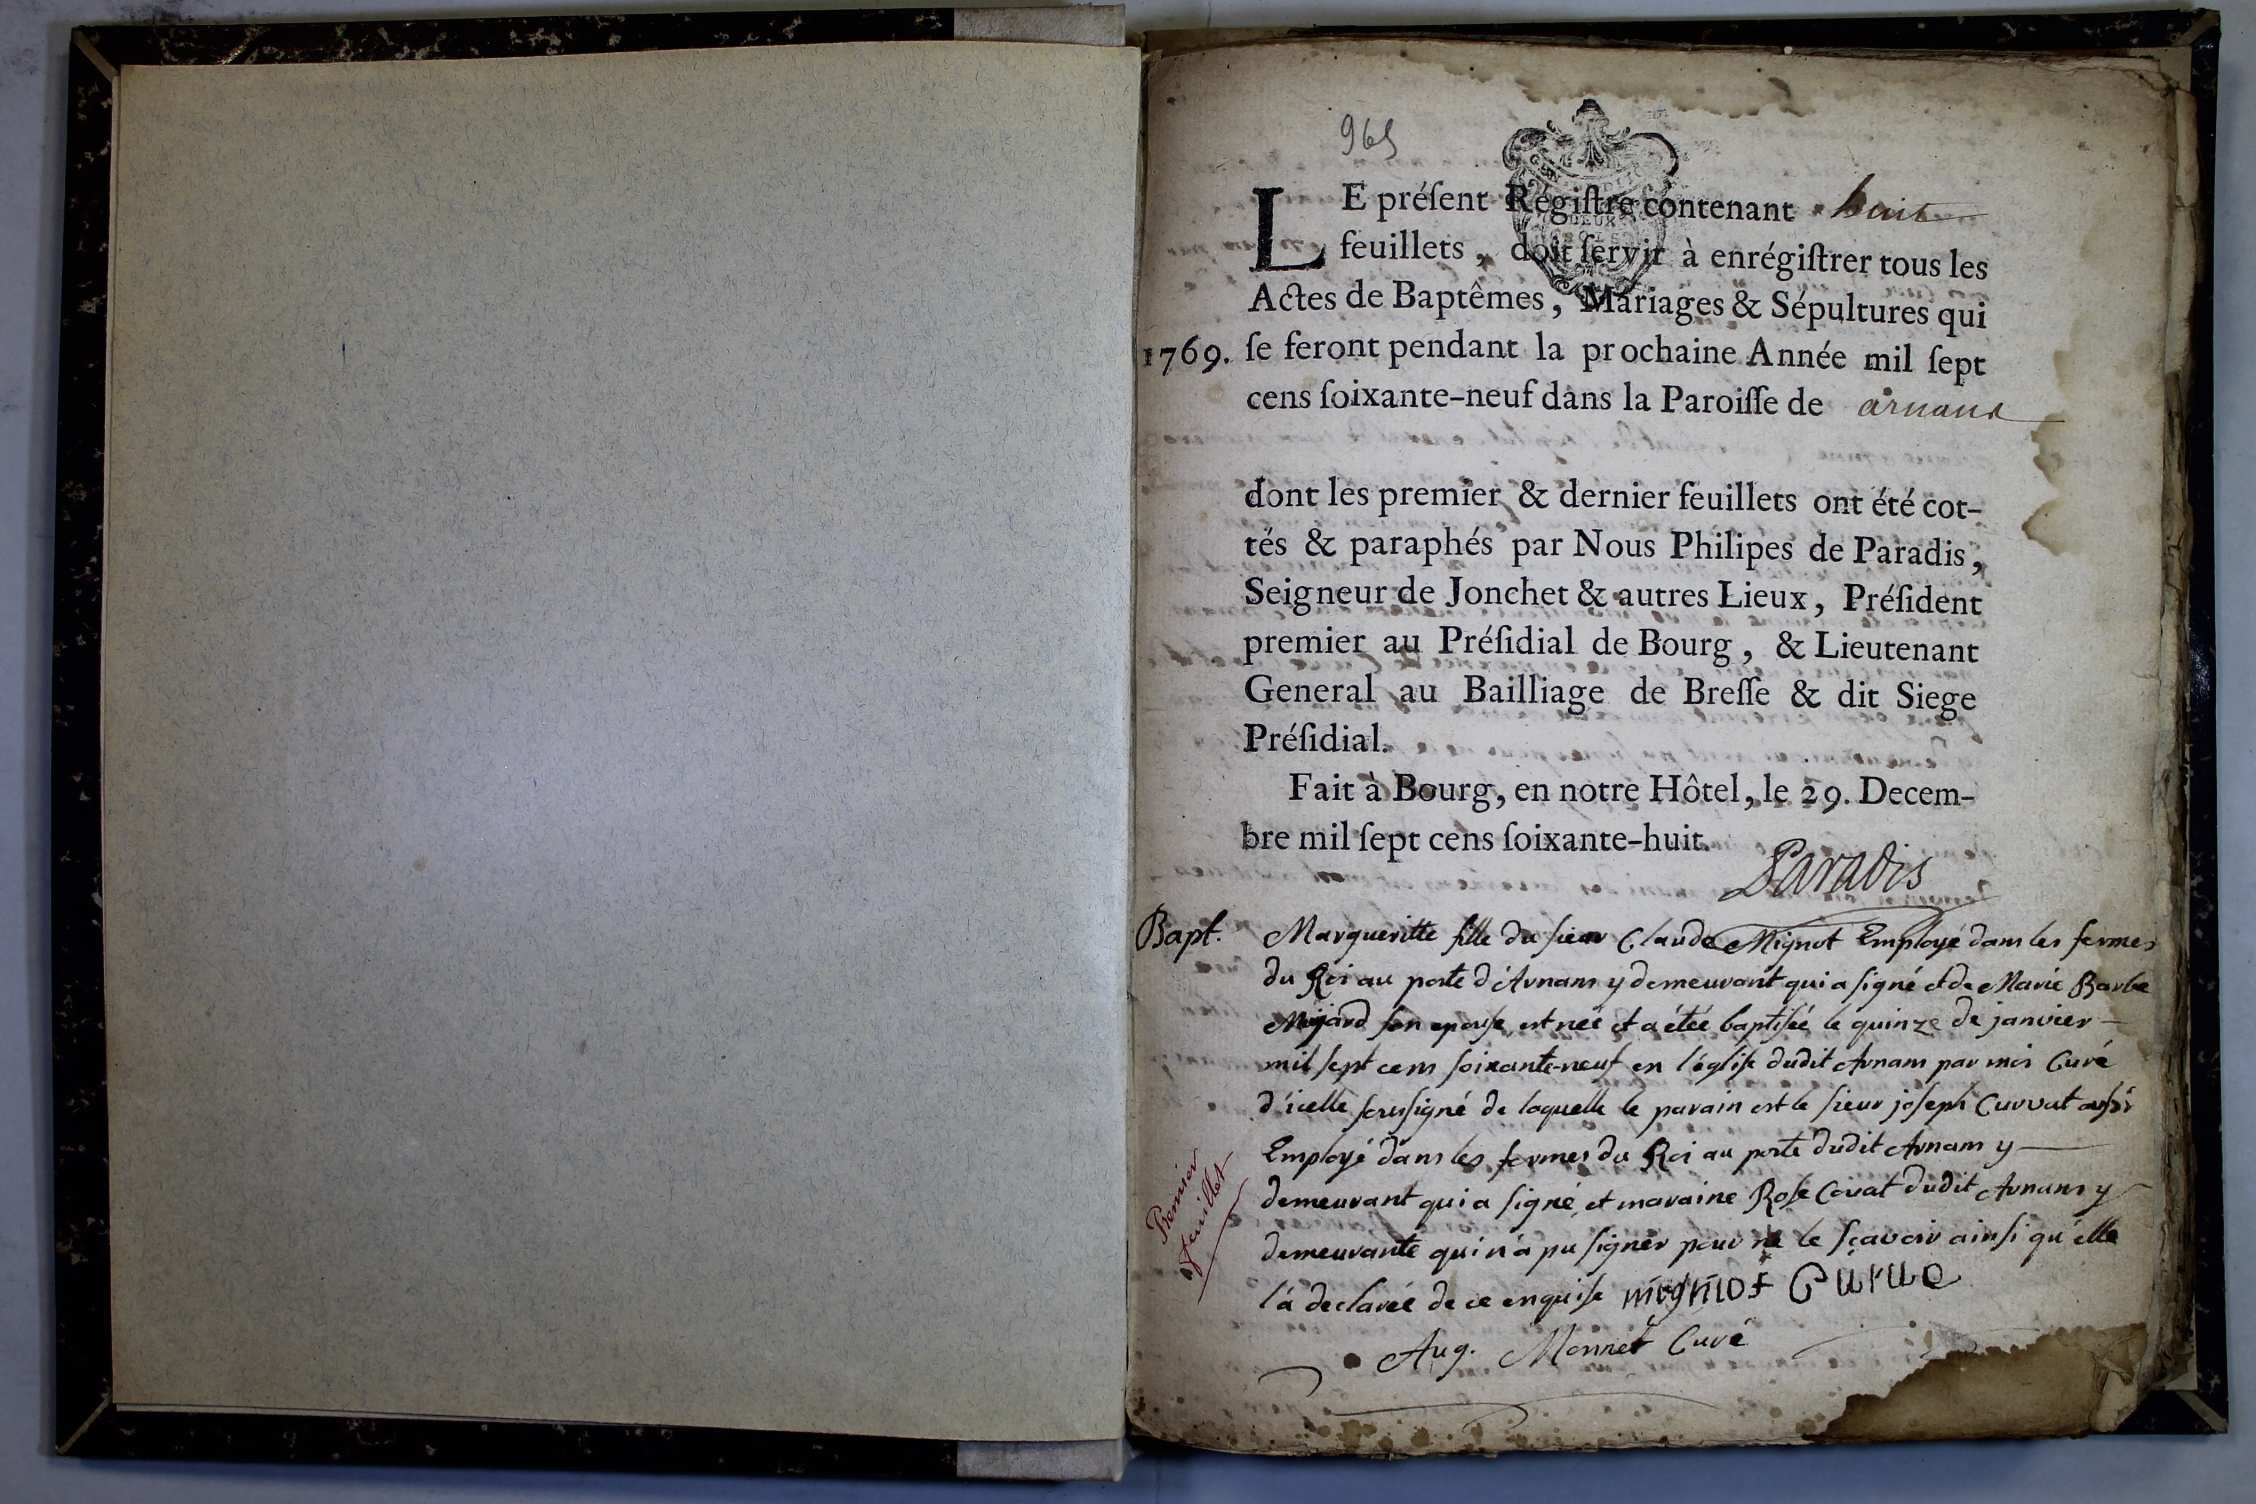 969
LE préſent Régiſtre contenant huit
feuillets, doit ſervir à enrégiſtrer tous les
Actes de Baptêmes, Mariages & Sépultures qui
1769. ſe feront pendant la prochaine Année mil ſept
cens ſoixante-neuf dans la Paroiſſe de arnans
dont les premier & dernier feuillets ont été cot-
tés & paraphés par Nous Philipes de Paradis,
Seigneur de Jonchet & autres Lieux, Préſident
premier au Préſidial de Bourg, & Lieutenant
General au Bailliage de Breſſe & dit Siege
Préſidial.
Fait à Bourg, en notre Hôtel, le 29. Decem-
bre mil ſept cens ſoixante-huit.
Paradis
Bapt. Margueritte fille du sieur Claude Mignot Employé dans les fermes
du Roi au poste d'Arnans y demeurant qui a signé et de Marie Barbe
son epouse, est née et a étée baptisée le quinze de janvier
mil sept cens soixante-neuf en l'église dudit Arnans par moi Curé
d'icelle soussigné de laquelle le parain est le sieur joseph Curvat aussi
Employé dans les fermes du Roi au poste dudit Arnans y
demeurant qui a signé, et maraine Rose Covat dudit Arnans y
demeurante qui n'a pu signer pour ne le sçavoir ainsi qu'elle
l'a declareé de ce enquise mignot
Aug. Monnet Curé
Premier
feuillet